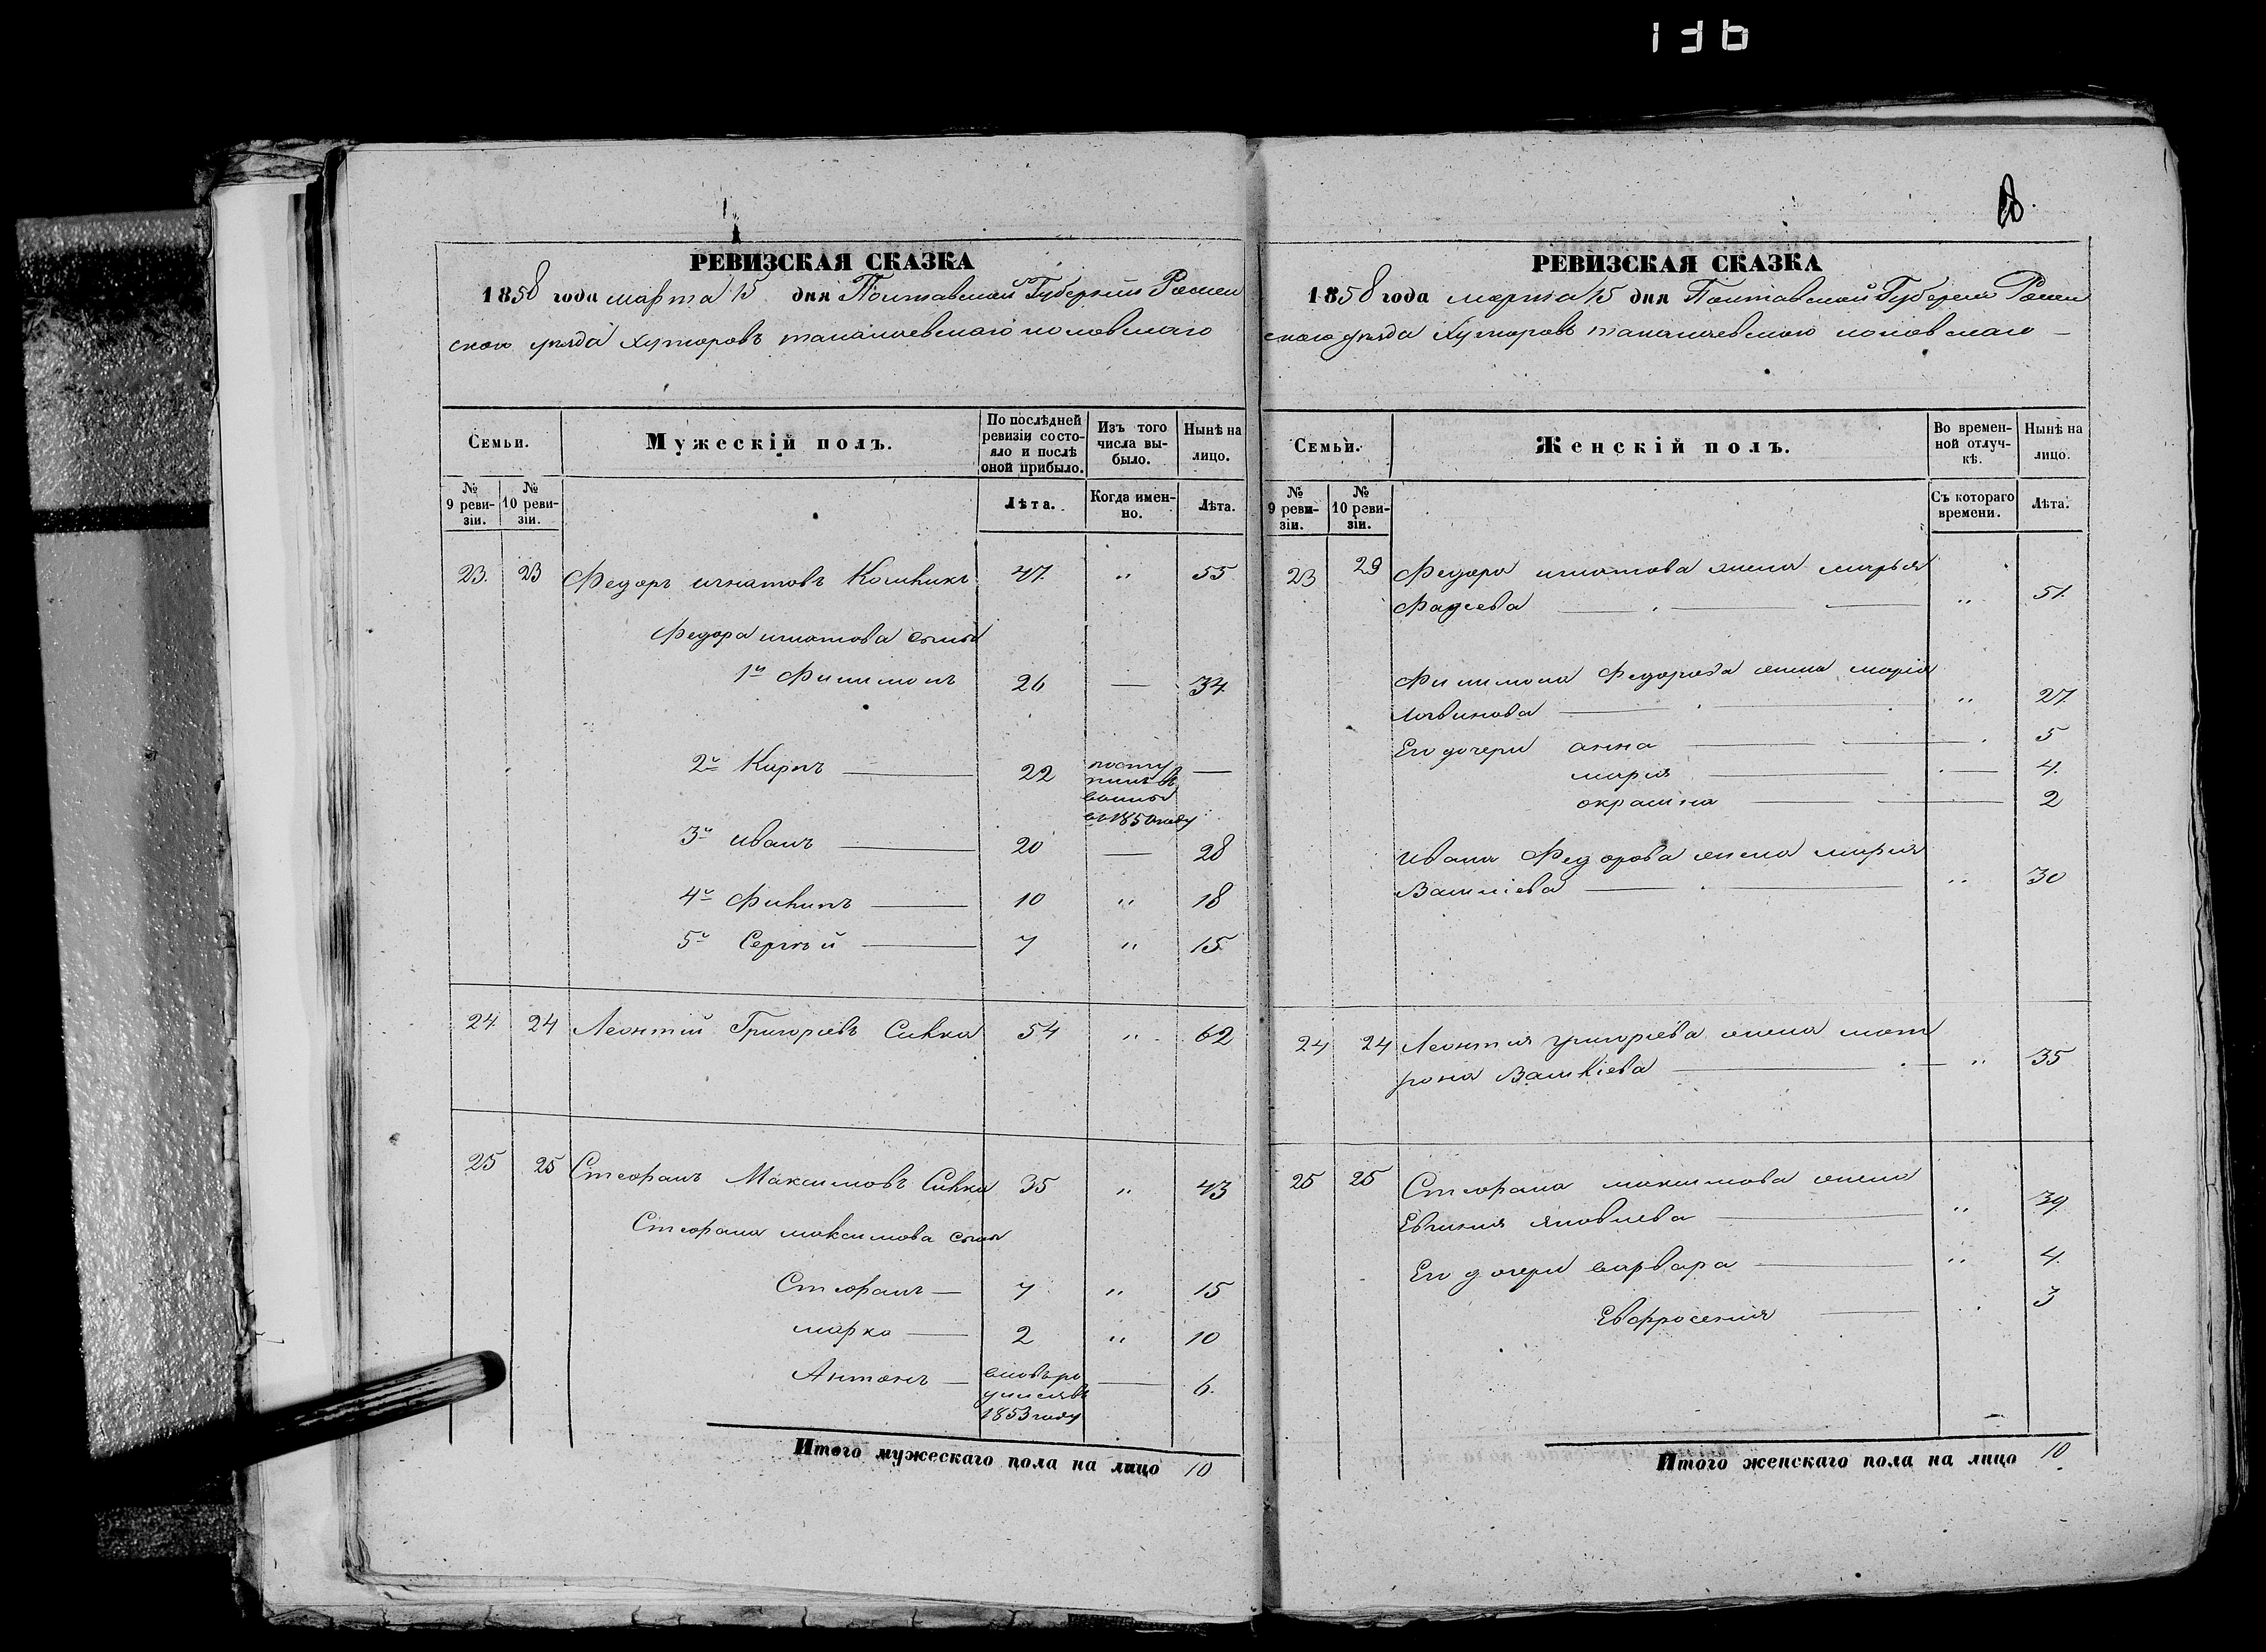 136
РЕВИЗСКАЯ СКАЗКА
1858 года марта 15 дня Полтавской Губерніи Ромен
скаго уѣзда Хуторовъ
Семьи.
Мужескій полъ.
По послѣдней ревизіи состояло и послѣ оной прибыло.
Изъ того числа выбыло.
Нынѣ на лицо.
№ 9 ревизіи.
№ 10 ревизіи.
Лѣта.
Когда именно.
Лѣта.
23. 23 Федоръ игнатовъ 47 " 55
Федора игнатова сыны
1й Филимонъ 26 — 34
2й Карпъ — 22 посту
пилъ въ —
въ 1850 году
3й иванъ — 20 — 28
4й Филипъ — 10 " 18
5й Сергѣй — 7 " 15
24 24 Леонтій Григоріевъ Силка 54 " 62
25 25 Стефанъ Максимовъ Силка 35 " 43
Стефана максимова сыны
Стефанъ — 7 " 15
марко — 2 " 10
Антонъ — вновь ро
дился въ — 6.
1853 году
Итого мужескаго пола на лицо 10
РЕВИЗСКАЯ СКАЗКА
1858 года марта 15 дня Полтавской Губерніи Ромен
скаго уѣзда Хуторовъ
Семьи.
Женскій полъ.
Во временной отлучкѣ.
Нынѣ на лицо.
№ 9 ревизіи.
№ 10 ревизіи.
Съ котораго времени.
Лѣта.
23 23 Федора игнатова жена марья
Фадеева — " 51.
Филимона Федорова жена марія
логвинова — " 27.
Его дочери анна — 5
марія — 4.
2
Ивана Федорова жена марія
Василіева — " 30
24 24 Леонтія григоріева жена мат
рона Василіева — " 35
25 25 Стефана максимова жена
Евгенія яковлева — " 39
Его дочери варвара — " 4.
Евфросенія — 3
Итого женскаго пола на лицо 10